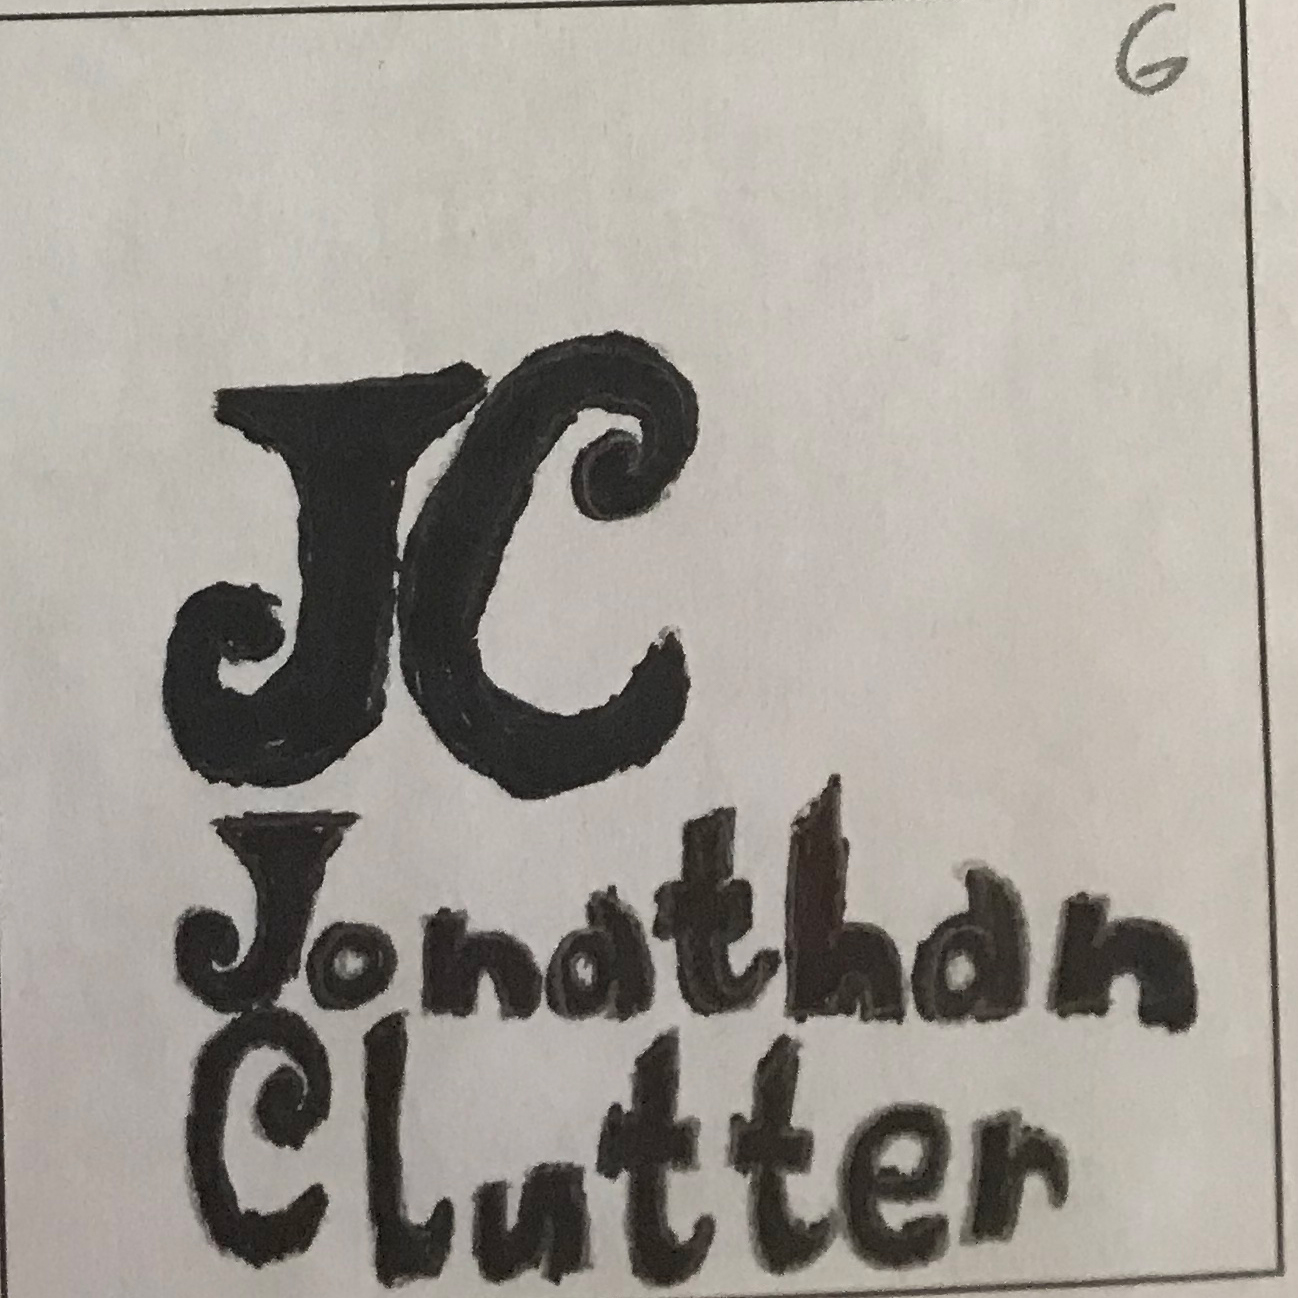 G
JC
Jonathan
Clutter